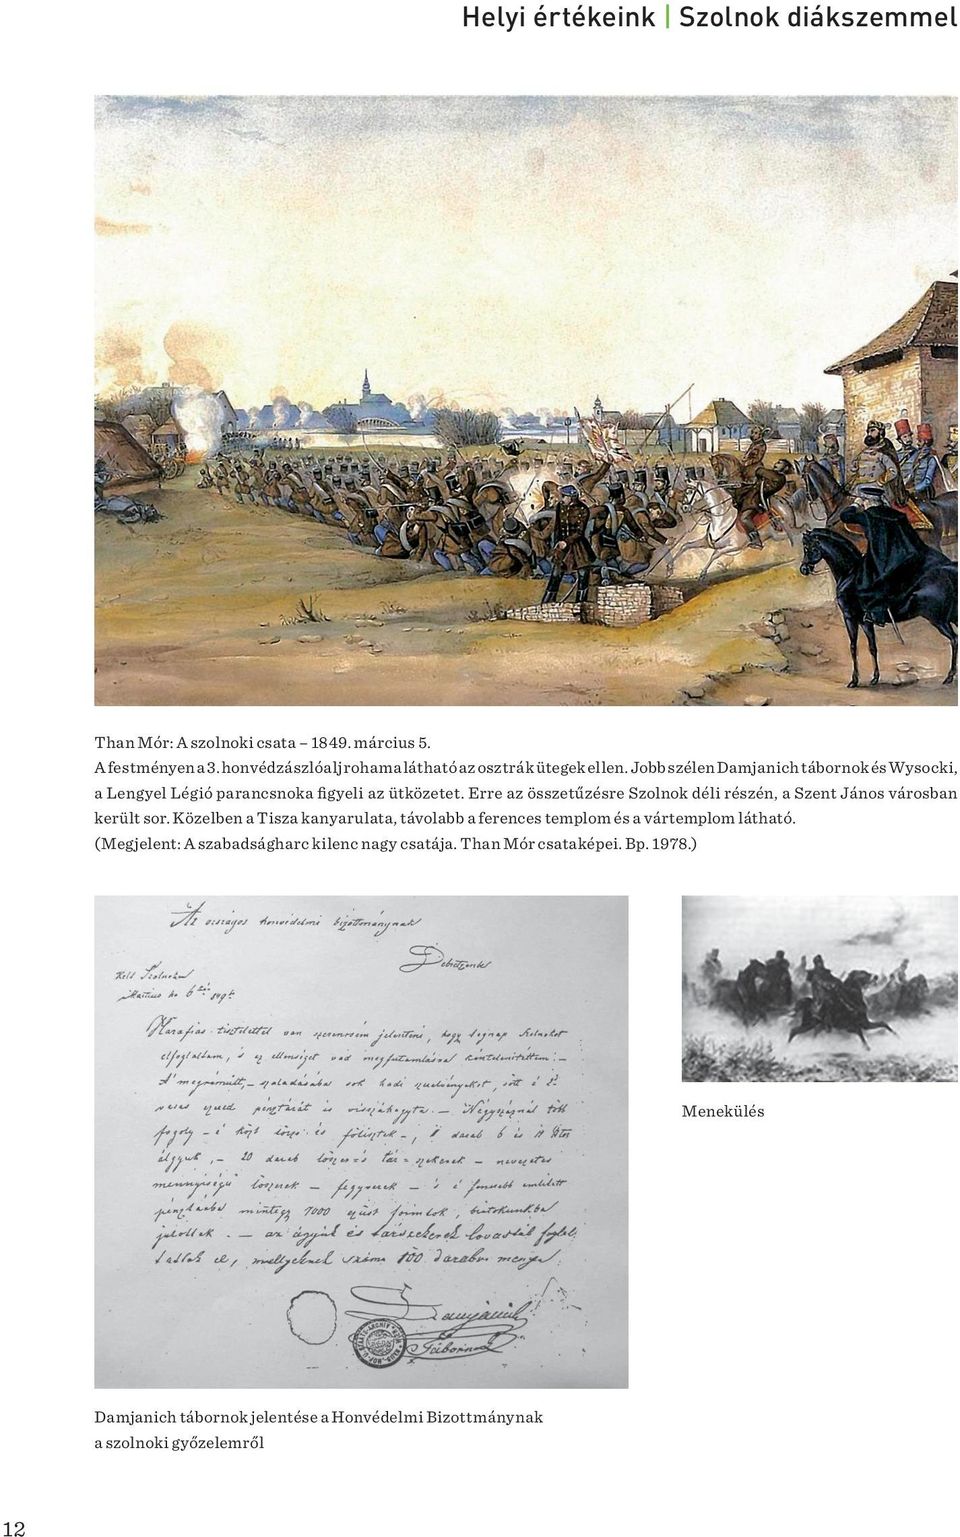 Helyi értékeink | Szolnok diákszemmel
Than Mór: A szolnoki csata – 1849. március 5.
A festményen a 3. honvédzászlóalj rohama látható az osztrák ütegek ellen. Jobb szélen Damjanich tábornok és Wysocki,
a Lengyel Légió parancsnoka figyeli az ütközetet. Erre az összetűzésre Szolnok déli részén, a Szent János városban
került sor. Közelben a Tisza kanyarulata, távolabb a ferences templom és a vártemplom látható.
(Megjelent: A szabadságharc kilenc nagy csatája. Than Mór csataképei. Bp. 1978.)
Az országos honvédelmi bizottmánynak
Debreczenbe
Kelt Szolnokon
Martius ho 6 849
Hazafias tisztelettel van szerencsém jelenteni, hogy tegnap Szolnokot
elfoglaltam, s ez ellenséget vad megfutamlásra kéntelenitettem. —
A megrémült, — szaladásába sok hadi szerelvényeket, sőtt
ezred pénztárát is visszahagyta. — Négyszáznál több
fogoly — közt — 8 darab 6 és
álgyuk, — 20 darab lőszer és tár = szekerek — nevezetes
mennyiségü lőszerek — fegyverek — s
pénztárba mintegy 7000 ezüst forintok, birtokunkba
jutottak. — az ágyúk és társzekerek lovastúl foglal-
tattak el, mellyeknek száma 100 darabra menye
Damjanich
Tábornok
Menekülés
Damjanich tábornok jelentése a Honvédelmi Bizottmánynak
a szolnoki győzelemről
12